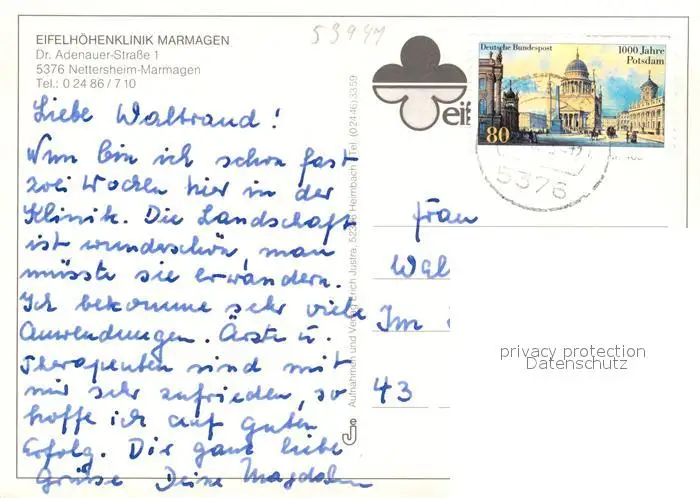 5394M
EIFELHÖHENKLINIK MARMAGEN
Dr. Adenauer-Straße 1
5376 Nettersheim-Marmagen
Tel.: 0 24 86 / 7 10
Liebe Waltraud!
Nun bin ich schon fast
zwei Wochen hier in der
Klinik. Die Landschaft
ist wunderschön, man
müsste sie erwandern.
Ich bekomme sehr viele
Anwendungen. Ärzte u.
Therapeuten sind mit
mir sehr zufrieden, so
hoffe ich auf guten
Erfolg. Dir ganz liebe
Grüsse Deine
Aufnahmen und Verlag Erich Justra, Heimbach Tel. (02446) 3359
eif
Deutsche Bundespost
1000 Jahre
Potsdam
80
5376
Frau
Wal
Im
43
privacy protection
Datenschutz